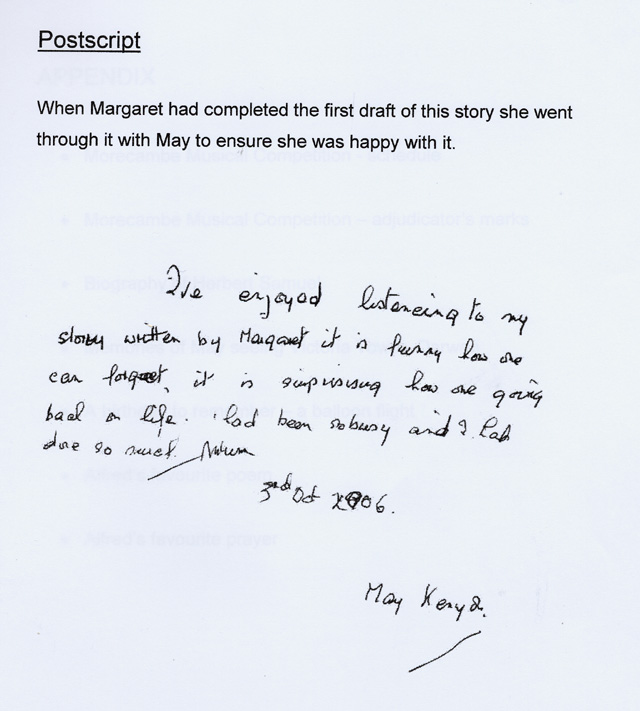 Postscript
When Margaret had completed the first draft of this story she went
through it with May to ensure she was happy with it.
I've enjoyed listeneing to my
story written by Margaret it is funny how one
can forget, it is suprising how one going
back on life. I had been so busy and I had
done so much.
3rd Oct 2006.
May